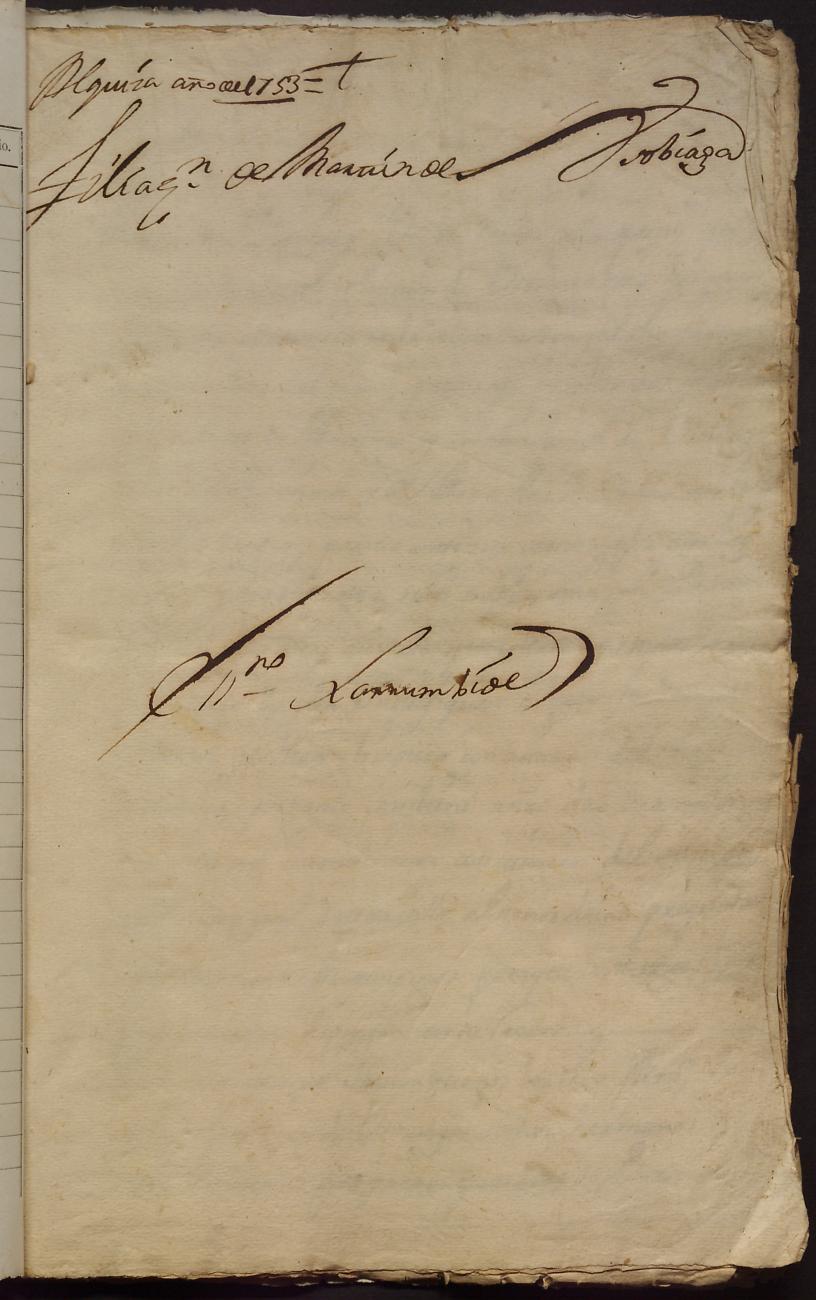 io.
Alquiza año de 1753 = †
filiaz.n de Martin de Yrobiaga
Ss.no Larrumbide